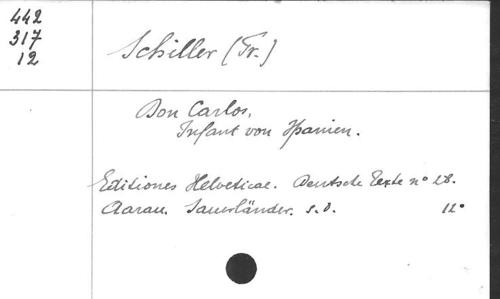 442
317
12
Schiller (Fr.)
Don Carlos,
Infant von Spanien.
Editiones Helveticae. Deutsche Texte nº 28.
Aarau. Sauerländer. s.d. 12º